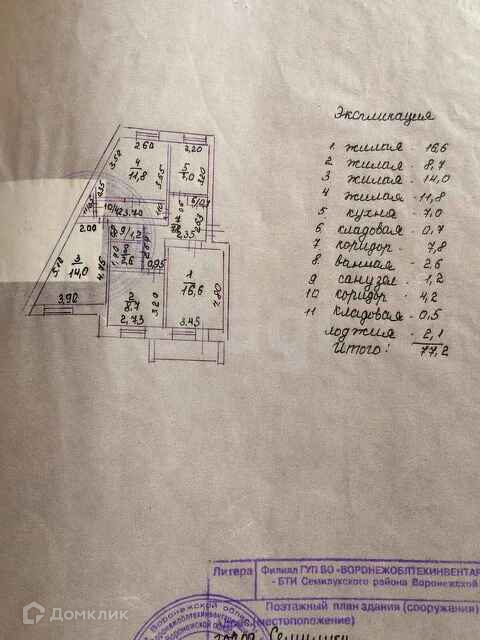 Экспликация
1 жилая - 16,6
2 жилая - 8,7
3 жилая - 14,0
4 жилая - 11,8
5 кухня - 7,0
6 кладовая - 0,7
7 коридор - 7,8
8 ванная - 2,6
9 санузел - 1,2
10 коридор - 4,2
11 кладовая - 0,5
лоджия - 2,1
Итого: 77,2
2.60
2,20
3.50
4
11,8
3.55
5
7,0
3.20
6/0,7
10/4,2
3.70
2.00
9/1,2
2.35
2.53
3
14,0
5.70
4.75
2,6
0,95
1
16,6
4.80
2
8,7
3.20
3.90
2,73
3.45
Литера
Филиал ГУП ВО «ВОРОНЕЖОБЛТЕХИНВЕНТАР
- БТИ Семилукского района Воронежской
Поэтажный план здания (сооружения)
(местоположение)
Воронежской обл
город Семилуки
Домклик